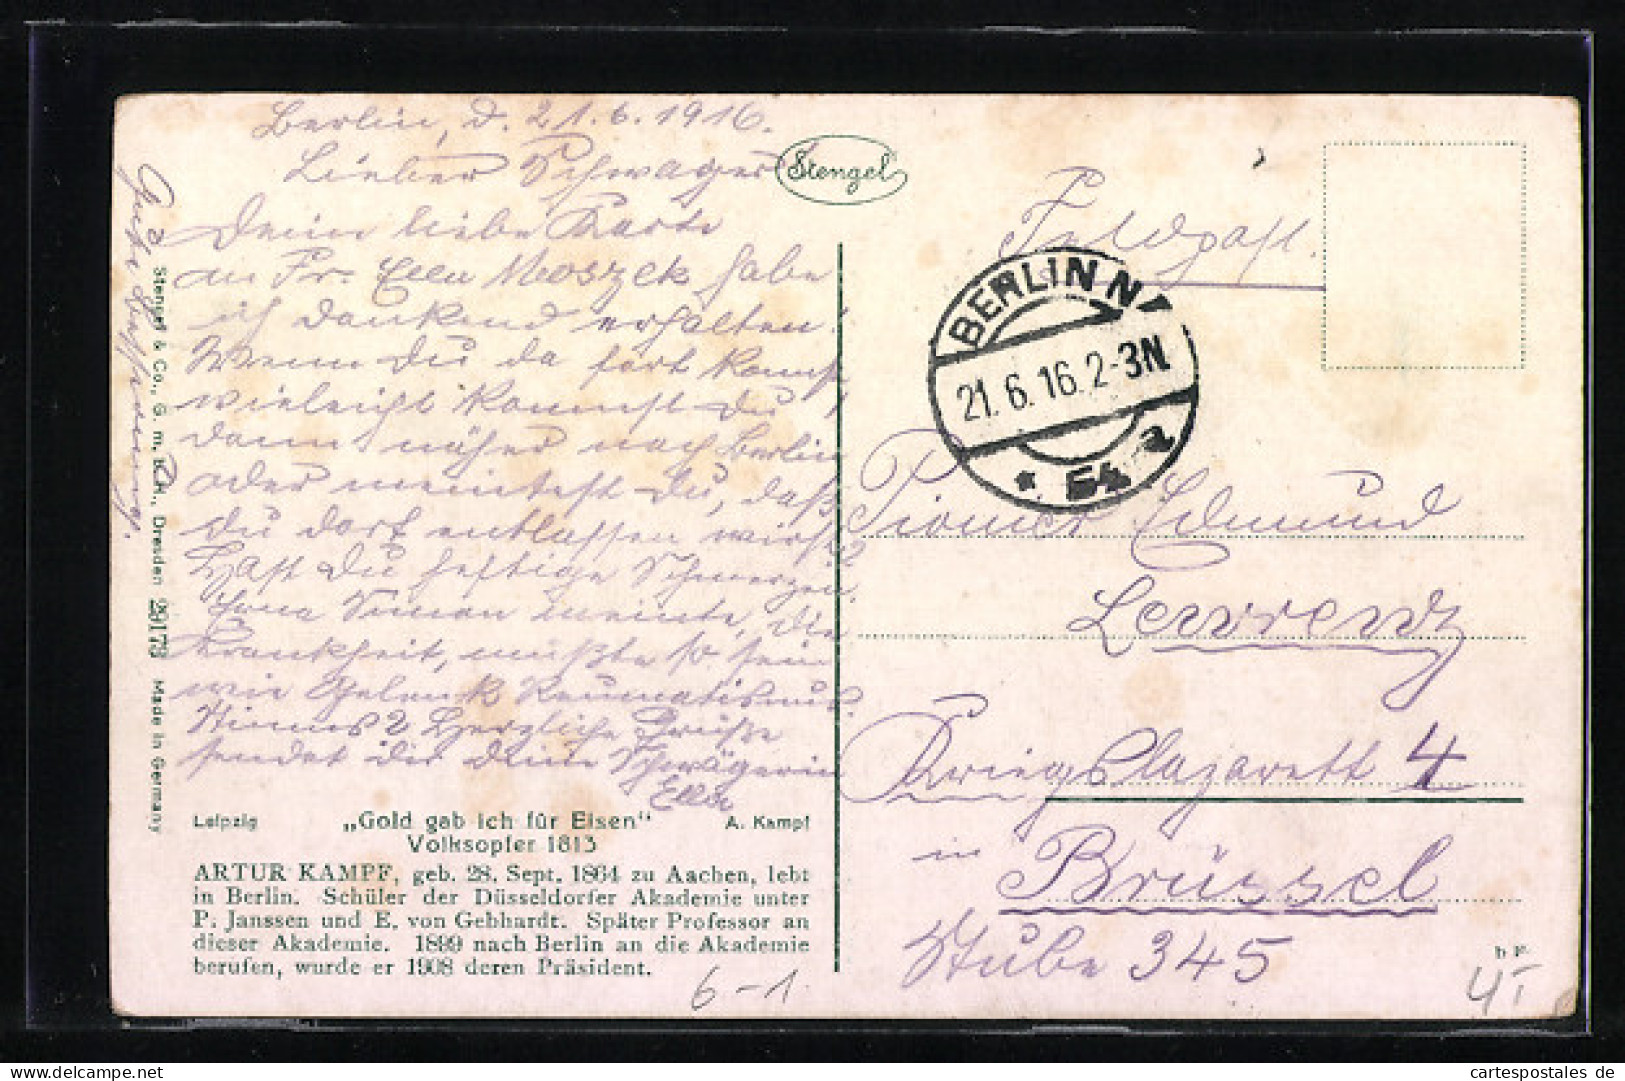 Berlin, d. 21.6.1916.
Lieber Schwager
Deine liebe Karte
an Fr. Ella Moszek habe
ich dankend erhalten!
Wenn Du da fort kannst,
vieleicht kommst Du
dann näher nach Berlin
oder meintest Du, daß
Du dort entlassen wirst?
Hast Du heftige Schmerzen.
Simon meinte, die
Krankheit, müßte so sein
wie Gelenk Reumatismus.
Stimmts? Herzliche Grüße
sendet dir deine Schwägerin
Ella
Gute Besserung.
Stengel
Stengel & Co., G. m. b. H., Dresden 29173 Made in Germany
Leipzig „Gold gab ich für Eisen" A. Kampf
Volksopfer 1813
ARTUR KAMPF, geb. 28. Sept. 1864 zu Aachen, lebt
in Berlin. Schüler der Düsseldorfer Akademie unter
P. Janssen und E. von Gebhardt. Später Professor an
dieser Akademie. 1899 nach Berlin an die Akademie
berufen, wurde er 1908 deren Präsident.
6-1
Feldpost.
BERLIN N
21.6.16.2-3N
* 54 a
Pionier Edmund
Lewrenz
Kriegslazarett 4
in Brüssel
Stube 345
b F.
cartespostales de